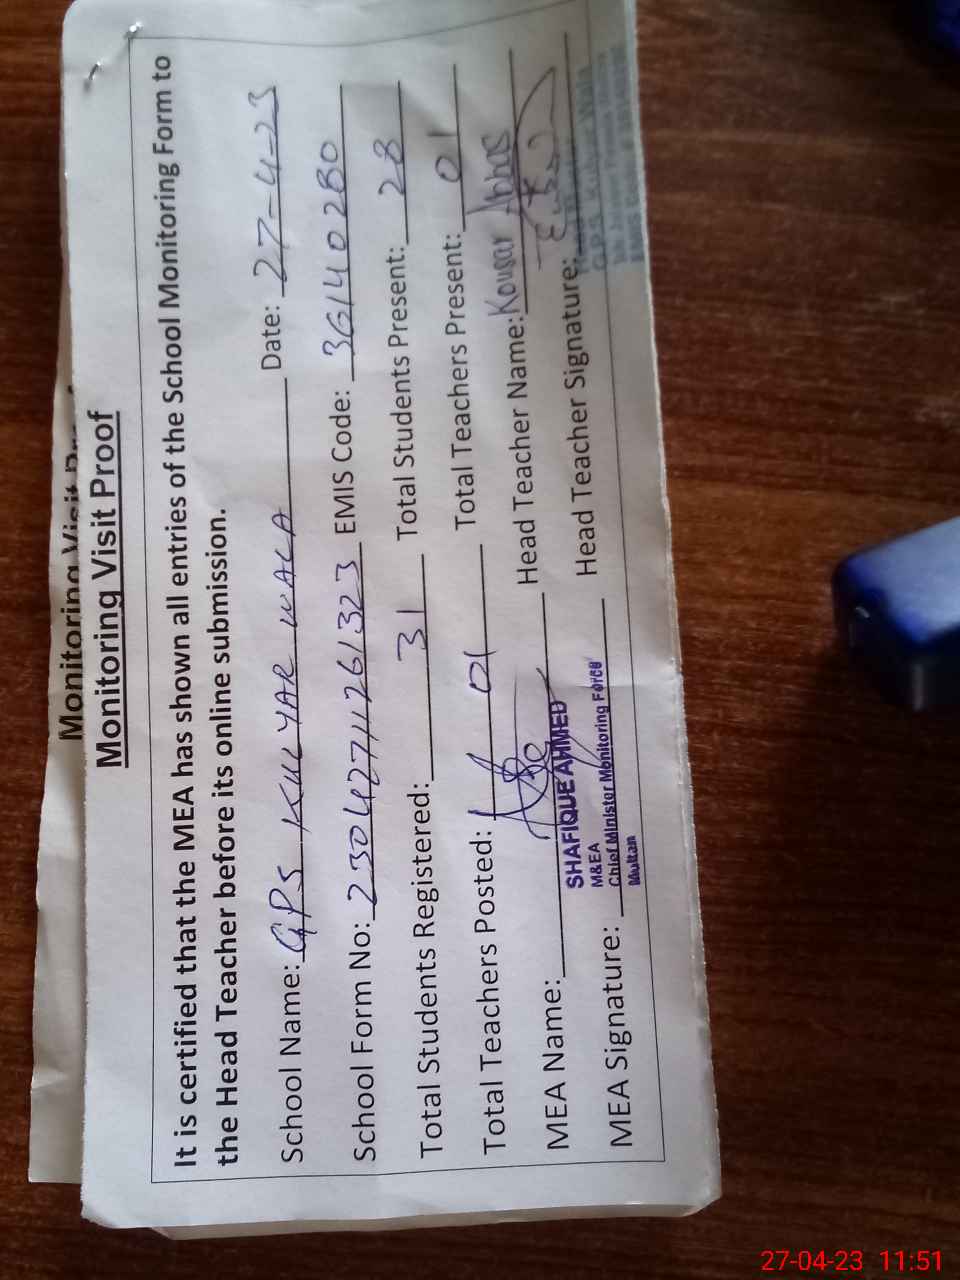 Monitoring Visit Pr
Monitoring Visit Proof
It is certified that the MEA has shown all entries of the School Monitoring Form to
the Head Teacher before its online submission.
School Name: GPS KULYAR WALA Date: 27-4-23
School Form No: 23042711261323 EMIS Code: 36140280
Total Students Registered: 31 Total Students Present: 28
Total Teachers Posted: 01 Total Teachers Present: 01
MEA Name: Head Teacher Name: Kousar Abbas
SHAFIQUE AHMED
M&EA
MEA Signature: Head Teacher Signature:
Chief Minister Monitoring Force
Multan
27-04-23 11:51